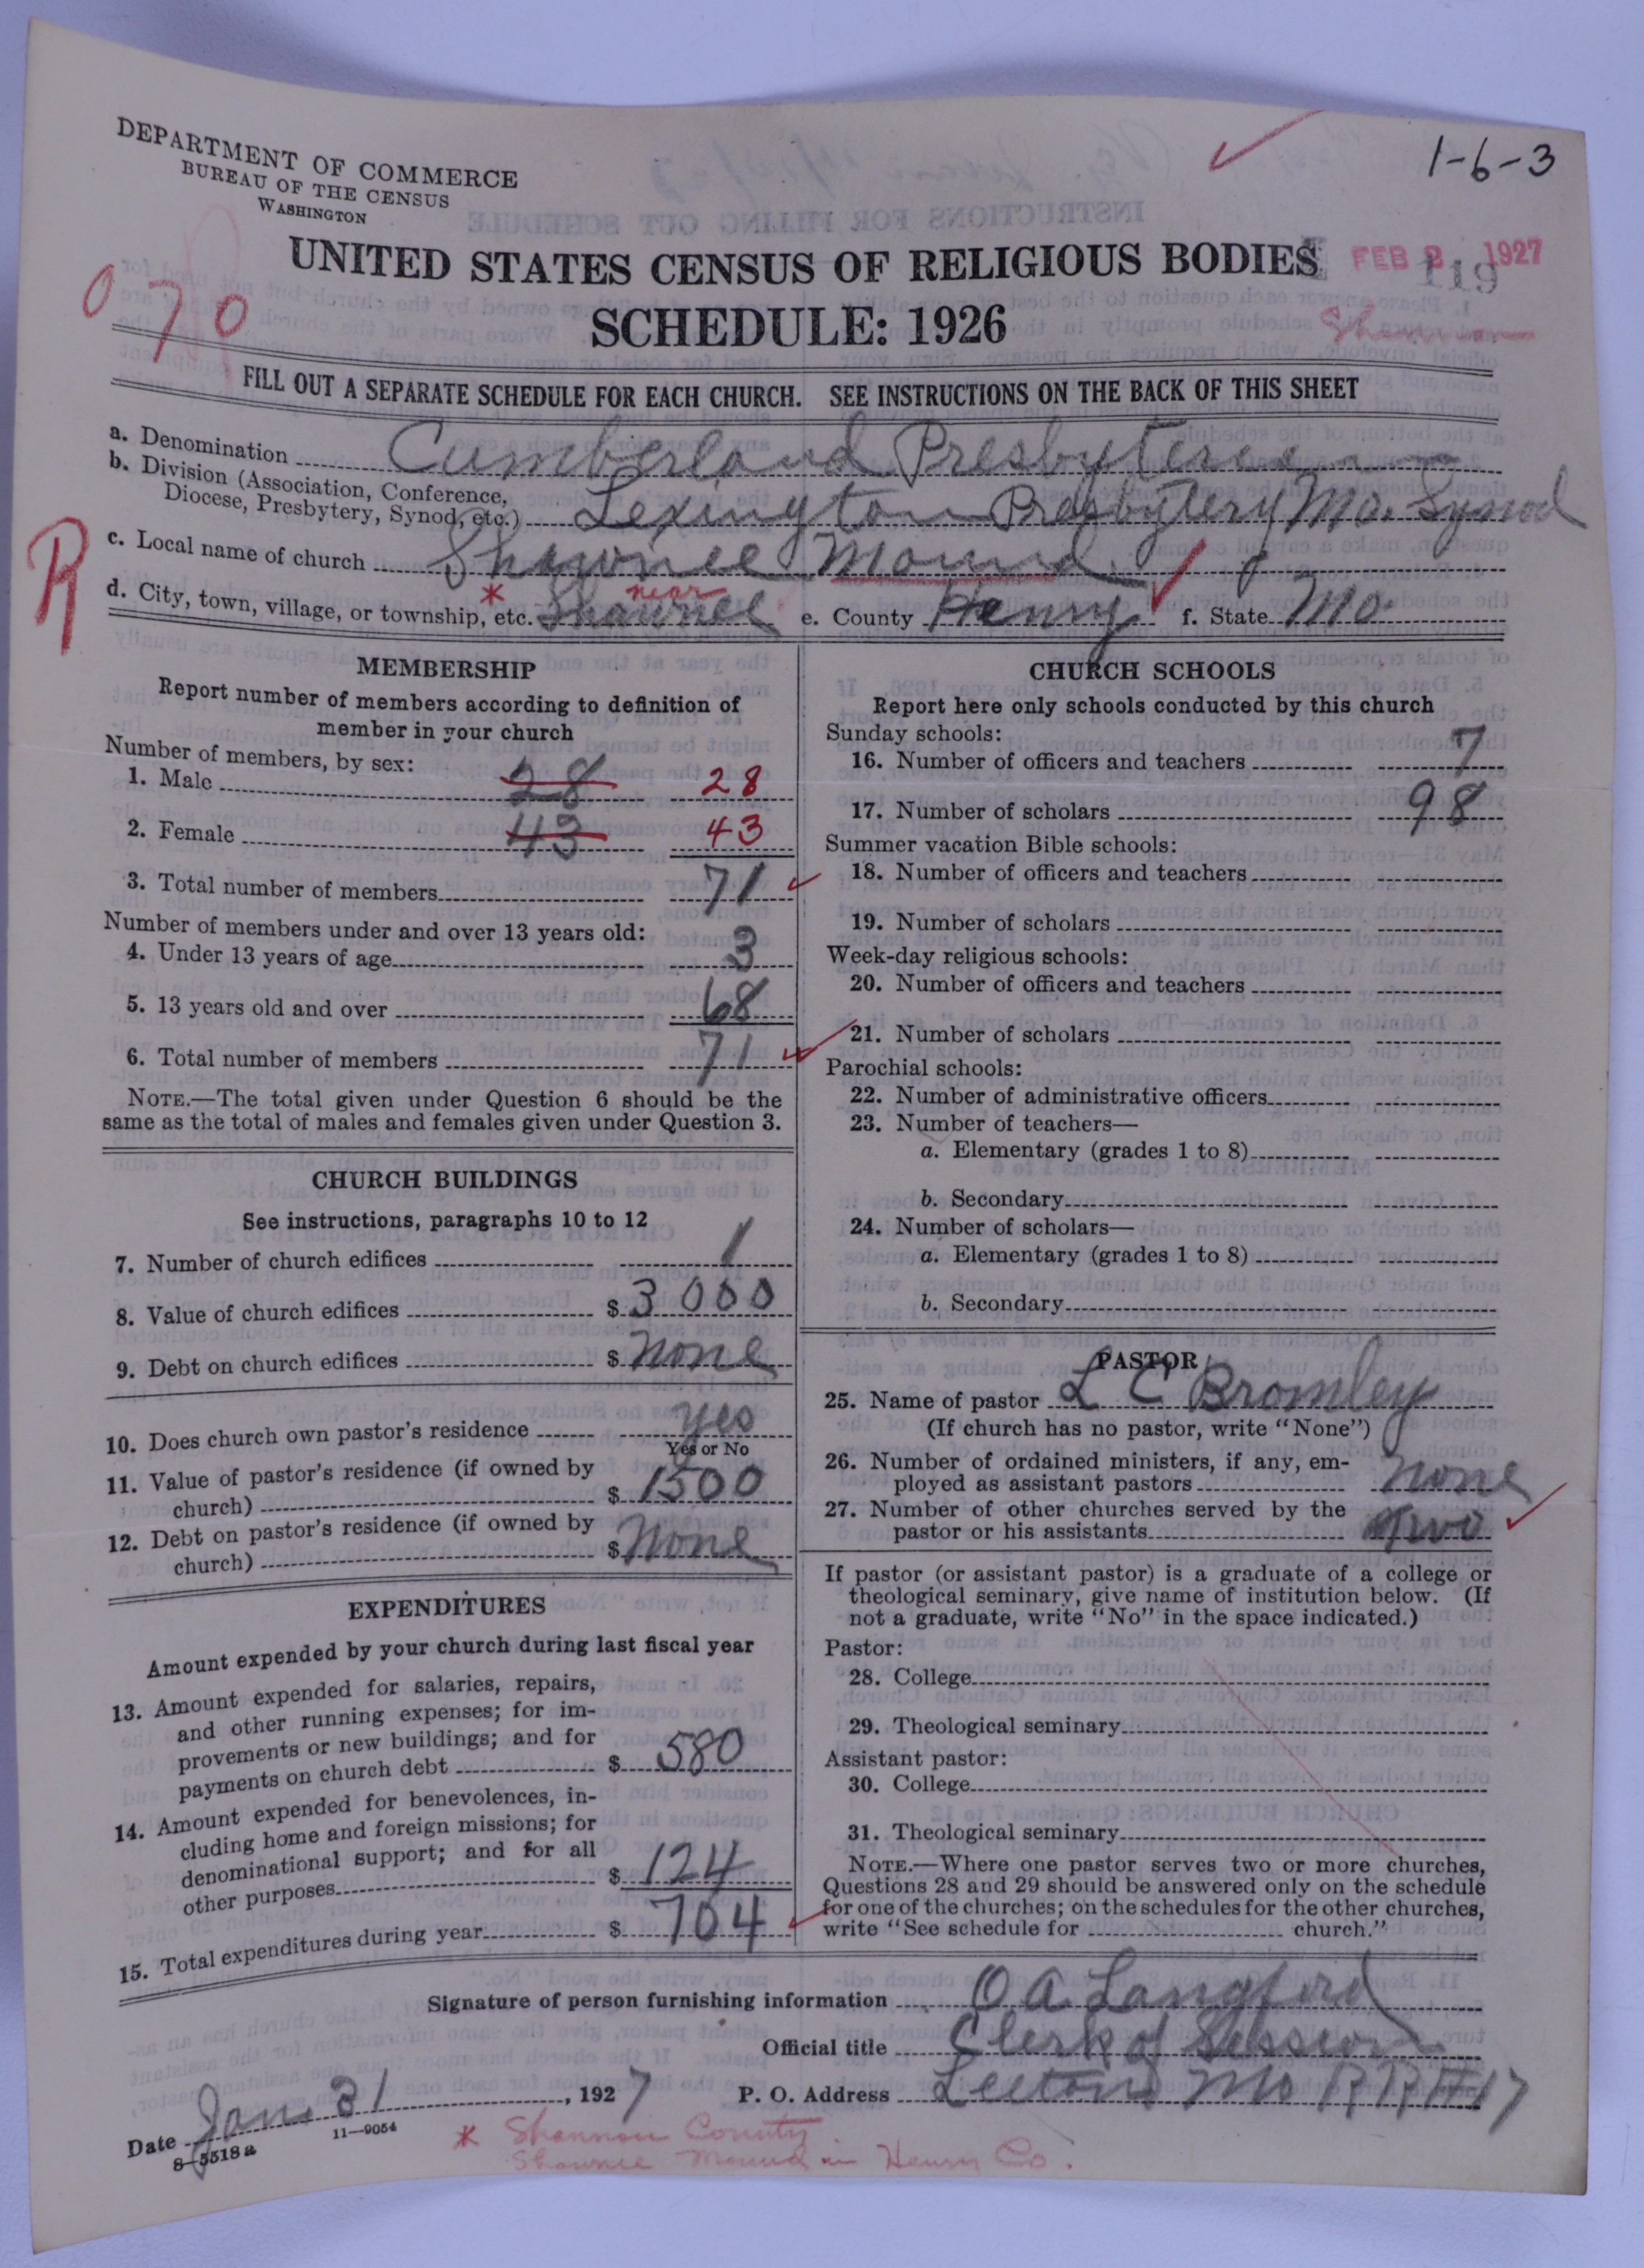 1-6-3
DEPARTMENT OF COMMERCE
BUREAU OF THE CENSUS
WASHINGTON
FEB 2 1927
119
UNITED STATES CENSUS OF RELIGIOUS BODIES
SCHEDULE: 1926
070
FILL OUT A SEPARATE SCHEDULE FOR EACH CHURCH. SEE INSTRUCTIONS ON THE BACK OF THIS SHEET
a. Denomination Cumberland Presbyterian
b. Division (Association, Conference,
Diocese, Presbytery, Synod, etc.) Lexington Presbytery Mo. Synod
R
c. Local name of church Shawnee Mound
d. City, town, village, or township, etc. * near Shawnee e. County Henry f. State Mo
MEMBERSHIP
Report number of members according to definition of
member in your church
Number of members, by sex:
1. Male 28 28
2. Female 43 43
3. Total number of members 71
Number of members under and over 13 years old:
4. Under 13 years of age 3
5. 13 years old and over 68
6. Total number of members 71
NOTE.—The total given under Question 6 should be the
same as the total of males and females given under Question 3.
CHURCH BUILDINGS
See instructions, paragraphs 10 to 12
7. Number of church edifices 1
8. Value of church edifices $ 3000
9. Debt on church edifices $ None
10. Does church own pastor's residence yes
Yes or No
11. Value of pastor's residence (if owned by
church) $ 1500
12. Debt on pastor's residence (if owned by
church) $ None
EXPENDITURES
Amount expended by your church during last fiscal year
13. Amount expended for salaries, repairs,
and other running expenses; for im-
provements or new buildings; and for
payments on church debt $ 580
14. Amount expended for benevolences, in-
cluding home and foreign missions; for
denominational support; and for all
other purposes $ 124
15. Total expenditures during year $ 704
CHURCH SCHOOLS
Report here only schools conducted by this church
Sunday schools:
16. Number of officers and teachers 7
17. Number of scholars 98
Summer vacation Bible schools:
18. Number of officers and teachers
19. Number of scholars
Week-day religious schools:
20. Number of officers and teachers
21. Number of scholars
Parochial schools:
22. Number of administrative officers
23. Number of teachers—
a. Elementary (grades 1 to 8)
b. Secondary
24. Number of scholars—
a. Elementary (grades 1 to 8)
b. Secondary
PASTOR
25. Name of pastor L C Bromley
(If church has no pastor, write "None")
26. Number of ordained ministers, if any, em-
ployed as assistant pastors None
27. Number of other churches served by the
pastor or his assistants Two
If pastor (or assistant pastor) is a graduate of a college or
theological seminary, give name of institution below. (If
not a graduate, write "No" in the space indicated.)
Pastor:
28. College
29. Theological seminary
Assistant pastor:
30. College
31. Theological seminary
NOTE.—Where one pastor serves two or more churches,
Questions 28 and 29 should be answered only on the schedule
for one of the churches; on the schedules for the other churches,
write "See schedule for church."
Signature of person furnishing information O A Langford
Official title Clerk of Session
Date Jan 31, 1927 P. O. Address Leeton Mo RR#17
8-5518a 11—9054
* Shannon County
Shawnee Mound in Henry Co.